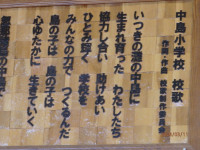 中島小学校 校歌
作詞・作曲 校歌制作委員会
いつきの灘の中島に
生まれ育った わたしたち
協力し合い 助けあい
ひとみ輝く 学校を
みんなの力で つくるんだ
島の子は 島の子は
心ゆたかに 生きていく